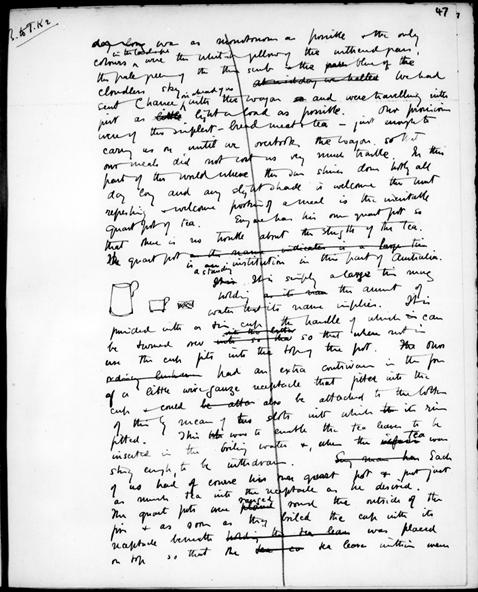 47
day long was as monotonous as possible & the only
colours in the landscape were the whitish yellow of the withered grass,
the pale green of the thin scrub & the pale blue of the
cloudless sky. At midday we halted We had
sent Chance on ahead of us with the wagon and were travelling with
just as little light a load as possible. Our provisions
were of the simplest - bread meat & tea - just enough to
carry us on until we overtook the wagon so that
our meals did not cost us very much trouble. In this
part of the world where the sun shines down hotly all
day long and any slight shade is welcome the most
refreshing & welcome portion of a meal is the inevitable
quart pot of tea. Everyone has his own quart pot so
that there is no trouble about the strength of the tea.
The quart pot as the name indicates is a large tin
is a standing institution in this part of Australia.
It is simply a large tin mug
holding as its name the amount of
water that its name implies. It is
provided with a tin cup the handle of which can
be turned over so that when not in
use the cup fits into the top of the pot. The ones
had an extra contrivance in the form
of a little wire gauze receptacle that fitted into the
cup & could be also be attached to the bottom
of this by means of two slots into which its rim
fitted. This was to enable the tea leaves to be
inserted in the boiling water & when the tea was
strong enough to be withdrawn. Each
of us had of course his own quart pot & put just
as much tea into the receptacle as he desired.
The quart pots were placed ranged round the outside of the
fire & as soon as they boiled the cup with its
receptacle beneath holding the tea leaves was placed
on top so that the tea leaves within were